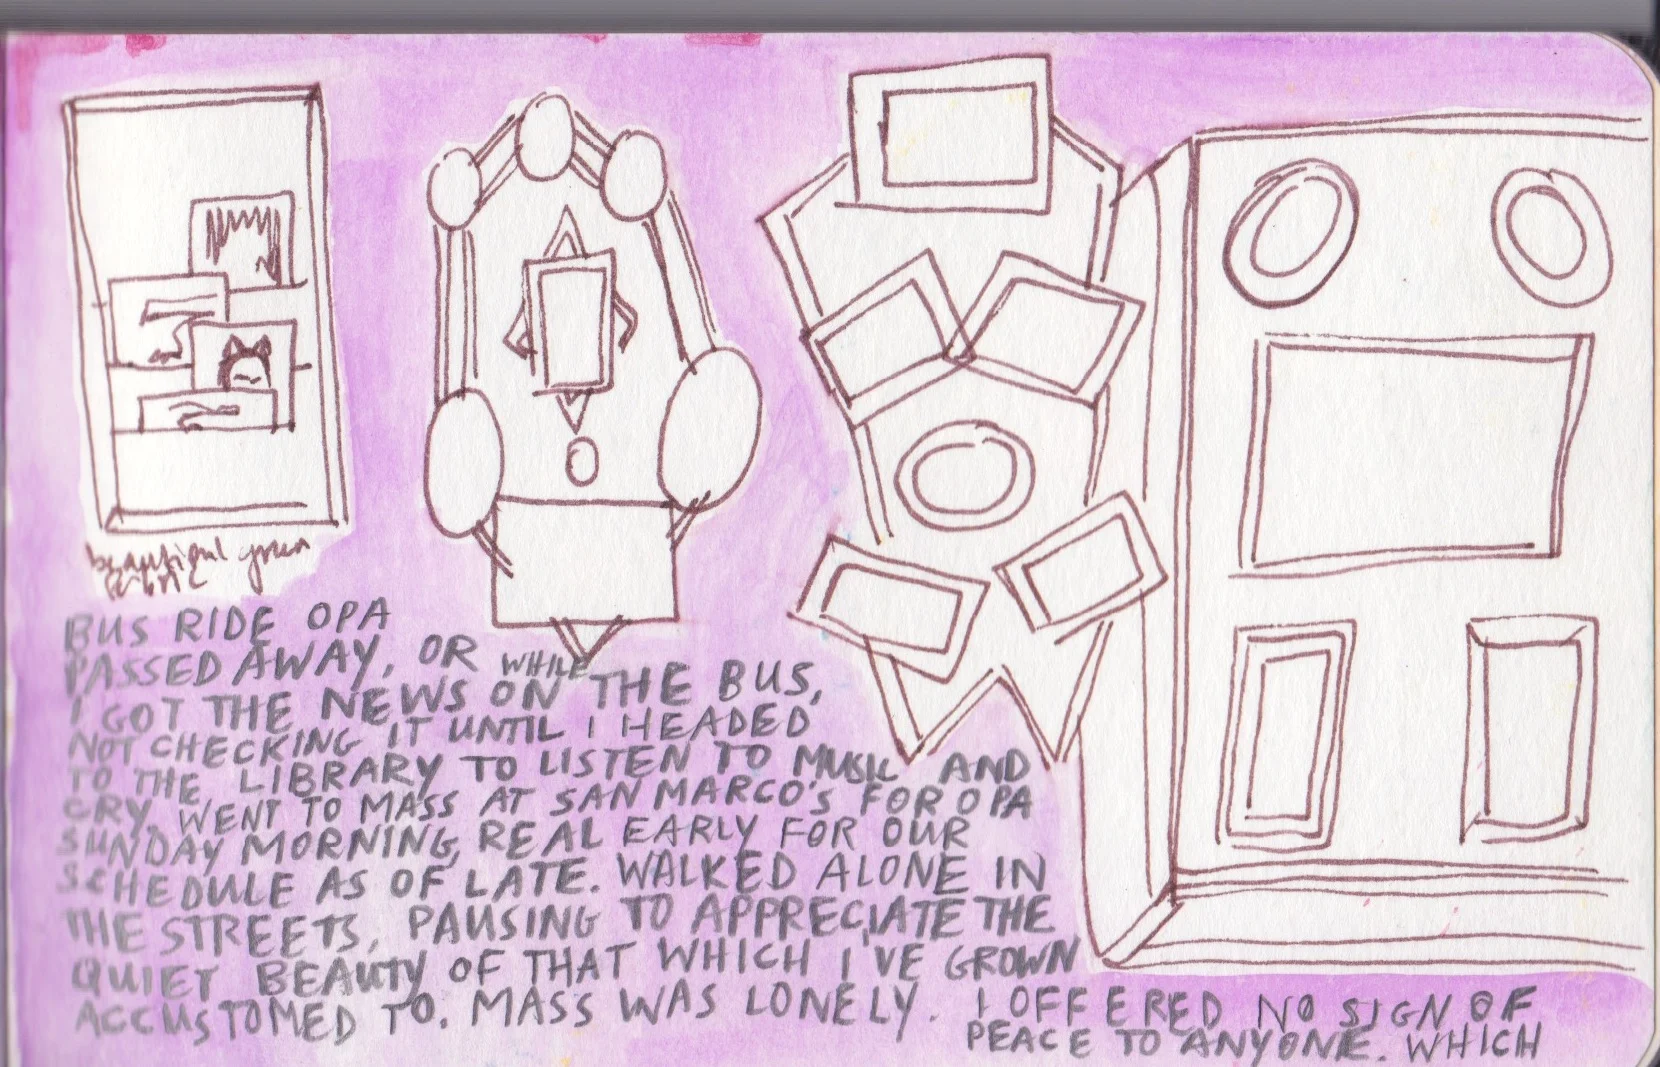 beautiful green fabric
BUS RIDE OPA
PASSED AWAY, OR WHILE
I GOT THE NEWS ON THE BUS,
NOT CHECKING IT UNTIL I HEADED
TO THE LIBRARY TO LISTEN TO MUSIC AND
CRY. WENT TO MASS AT SAN MARCO'S FOR OPA
SUNDAY MORNING, REAL EARLY FOR OUR
SCHEDULE AS OF LATE. WALKED ALONE IN
THE STREETS, PAUSING TO APPRECIATE THE
QUIET BEAUTY OF THAT WHICH I'VE GROWN
ACCUSTOMED TO. MASS WAS LONELY. I OFFERED NO SIGN OF
PEACE TO ANYONE. WHICH